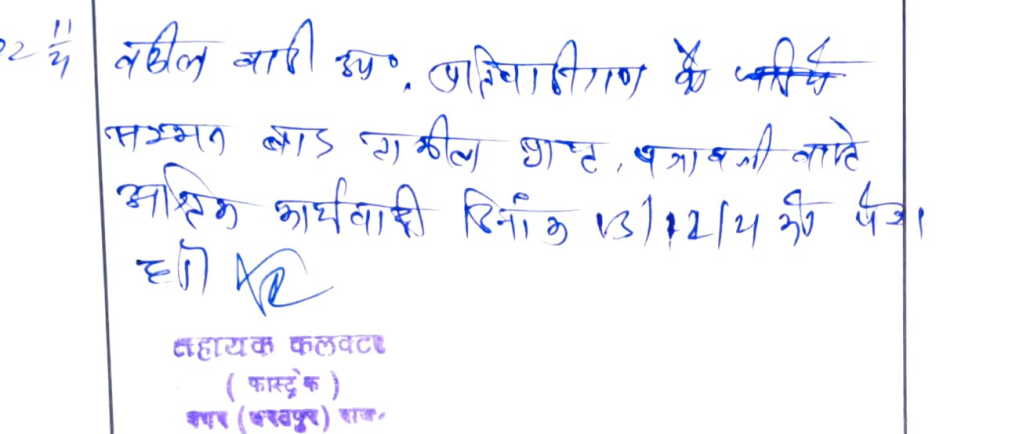 22 11/4 वकील वादी उप॰, प्रतिवादीगण के
सम्मन बाद तामील प्राप्त, पत्रावली वास्ते
अग्रिम कार्यवाही दिनांक 13/12/4 को पेश
हो।
सहायक कलक्टर
( फास्ट्रेक )
नगर (भरतपुर) राज.